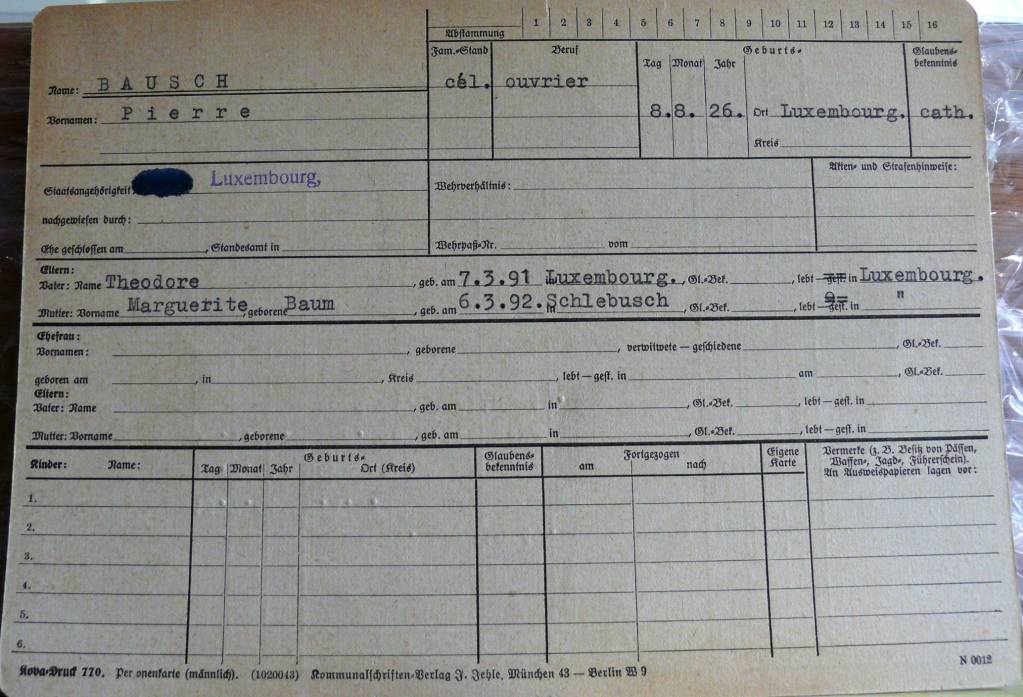 Abstammung 1 2 3 4 5 6 7 8 9 10 11 12 13 14 15 16
Fam.=Stand Beruf Geburts= Glaubens=
Tag Monat Jahr bekenntnis
Name: BAUSCH cél. ouvrier
Vornamen: Pierre 8.8. 26. Ort Luxembourg. cath.
Kreis
Staatsangehörigkeit: Luxembourg, Wehrverhältnis: Akten= und Strafenhinweise:
nachgewiesen durch:
Ehe geschlossen am , Standesamt in Wehrpaß=Nr. vom
Eltern:
Vater: Name Theodore , geb. am 7.3.91 in Luxembourg. , Gl.=Bek. , lebt — gest. in Luxembourg.
Mutter: Vorname Marguerite, geborene Baum , geb. am 6.3.92. in Schlebusch , Gl.=Bek. , lebt — gest. in "
Ehefrau:
Vornamen: , geborene , verwitwete — geschiedene , Gl.=Bek.
geboren am , in , Kreis , lebt — gest. in am , Gl.=Bek.
Eltern:
Vater: Name , geb. am in , Gl.=Bek. , lebt — gest. in
Mutter: Vorname , geborene , geb. am in , Gl.=Bek. , lebt — gest. in
Kinder: Name: Geburts= Glaubens= Fortgezogen Eigene Vermerke (z. B. Besitz von Pässen,
Tag Monat Jahr Ort (Kreis) bekenntnis am nach Karte Waffen=, Jagd=, Führerschein).
An Ausweispapieren lagen vor:
1.
2.
3.
4.
5.
6.
Kova=Druck 770. Per onenkarte (männlich). (1020043) Kommunalschriften=Verlag J. Jehle, München 43 — Berlin W 9 N 0012